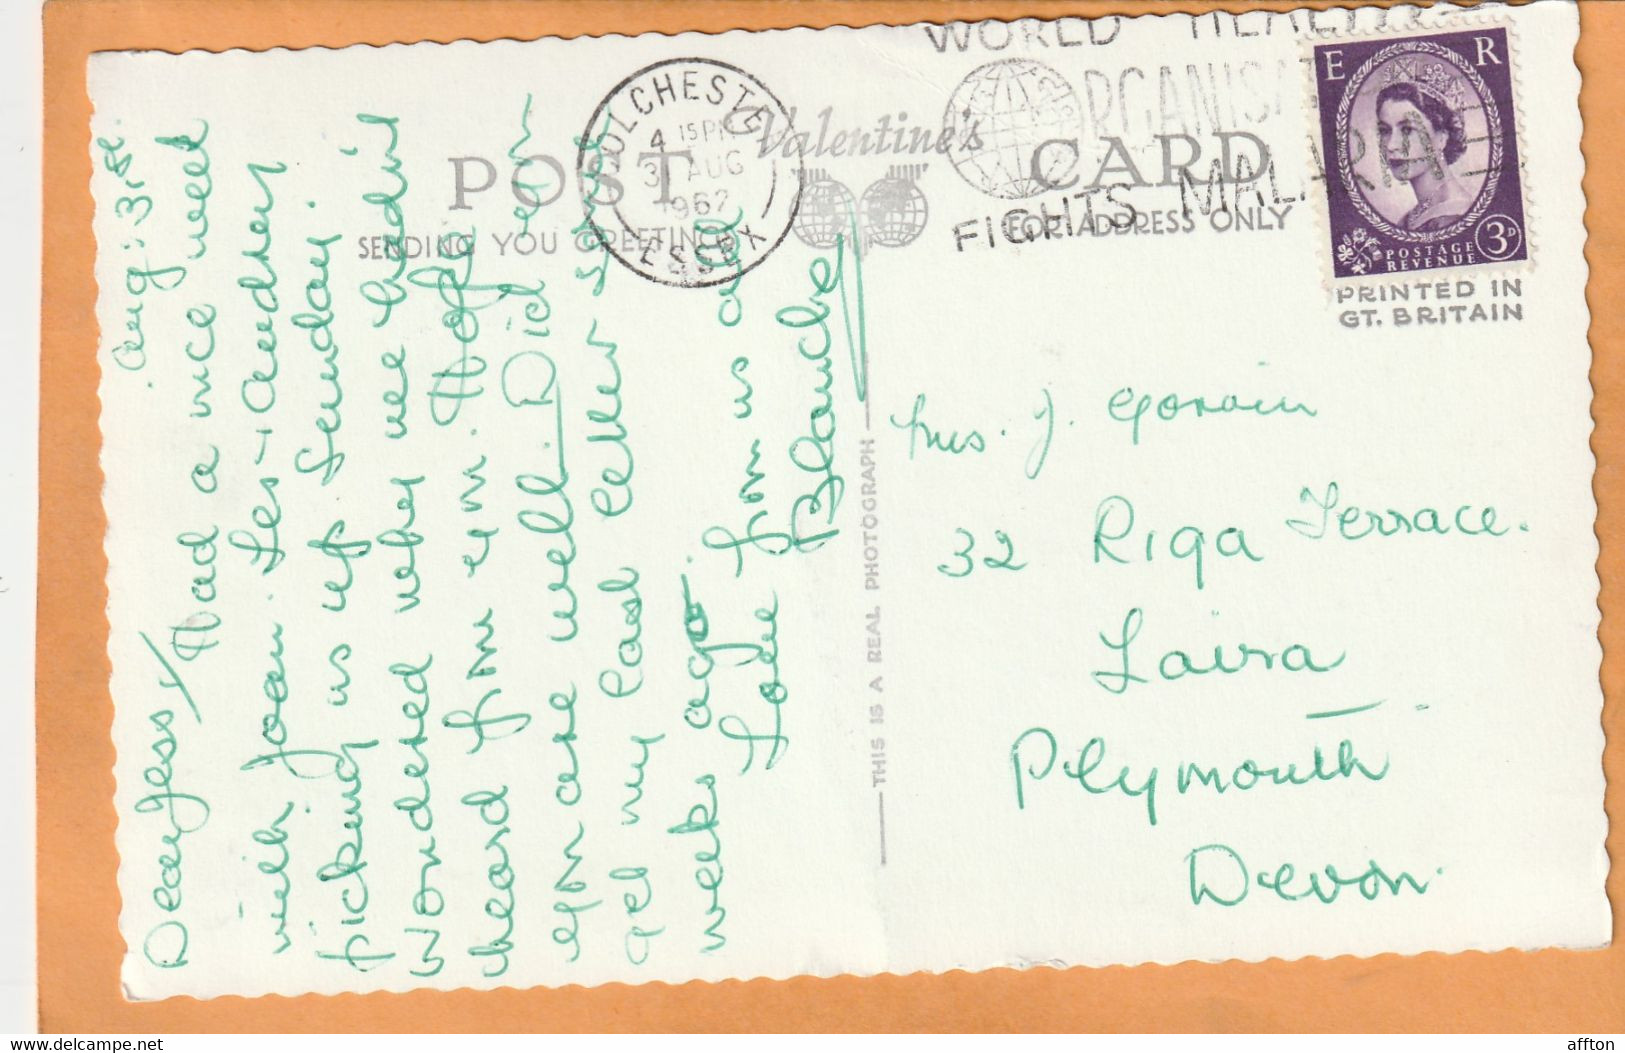 Aug: 31st.
Dear Jess/ Had a nice week
with Joan. Les + Audrey
picking us up Sunday.
Wondered why we hadn't
heard from em. Hope
em are well. Did em
get my last letter
weeks ago.
Love from us all
Blanche
POST CARD
Valentine's
SENDING YOU GREETINGS
FOR ADDRESS ONLY
COLCHESTER
4 15 PM
31 AUG
1962
ESSEX
WORLD HEALTH
ORGANISATION
FIGHTS MALARIA
E R
POSTAGE
REVENUE
3D
PRINTED IN
GT. BRITAIN
THIS IS A REAL PHOTOGRAPH
Mrs. J. Gorain
32 Riga Terrace.
Laira
Plymouth
Devon.
www.delcampe.net
affton